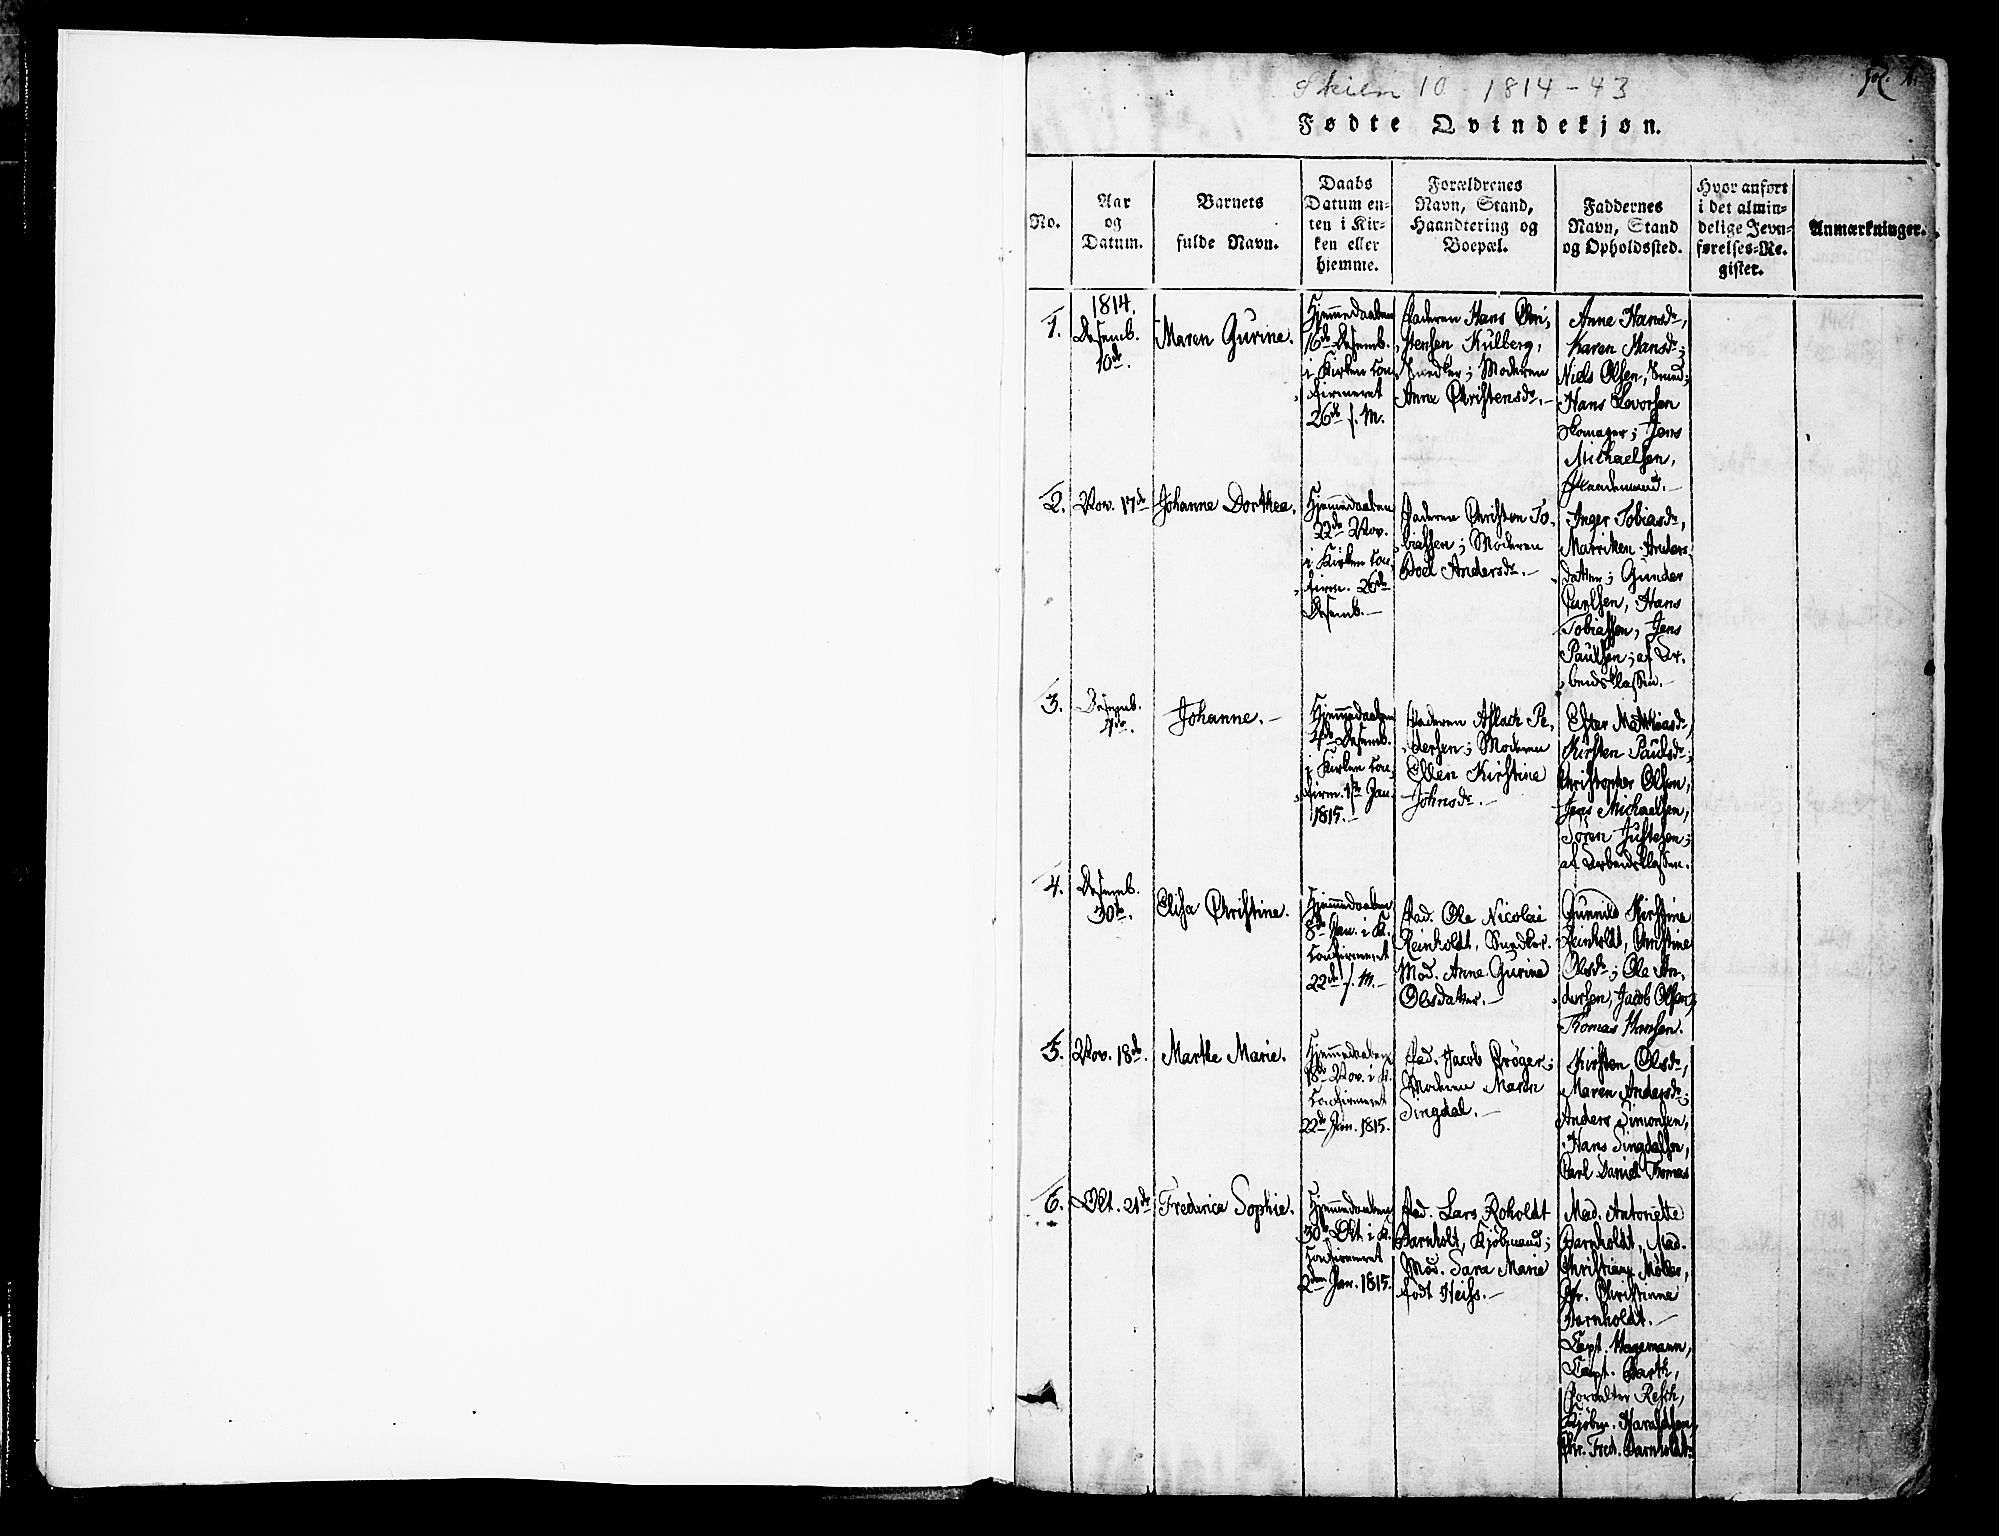 Skien 10 1814-43
Fol. 1.
Fødte Qvindekjøn.
No.
Aar
og
Datum.
Barnets
fulde Navn.
Daabs
Datum en-
ten i Kir-
ken eller
hjemme.
Forældrenes
Navn, Stand,
Haandtering og
Boepæl.
Faddernes
Navn, Stand
og Opholdssted.
Hvor anført
i det almin-
delige Jevn-
førelses-Re-
gister.
Anmærkninger.
1.
1814.
Desemb.
10de.
Maren Gurine.
Hjemmedaaben
16de Desemb.
i Kirken con-
firmeret
26de s. M.
Faderen Hans Chri-
stensen Kulberg,
Snedker; Moderen
Anne Christensdr.
Anne Hansdr,
Karen Hansdr;
Niels Olsen, Smed;
Hans Levorsen
Skomager; Jens
Michaelsen,
2.
Nov. 17de
Johanne Dorthea.
Hjemmedaaben
22de Nov.
i Kirken con-
firm. 26de
Desemb.
Faderen Christen To-
biassen; Moderen
Boel Andersdr.
Inger Tobiasdr,
Marriken Anders-
datter; Gunder
Carlsen, Hans
Tobiassen, Jens
Paulsen; af Ar-
beidsklassen.
3.
Desemb.
4de.
Johanne.
Hjemmedaaben
4de Desemb.
i Kirken con-
firm. 1ste Jan.
1815.
Faderen Aslach Pe-
dersen; Moderen
Ellen Kirstine
Johnsdr.
Ester Mathiasdr,
Kirsten Paulsdr;
Christopher Olsen,
Jens Michaelsen,
Søren Justesen;
af Arbeidsklassen.
4.
Desemb.
30te.
Elisa Christine.
Hjemmedaaben
8de Jan. i K.
confirmeret
22de s. M.
Fad. Ole Nicolai
Reinholdt, Snedker.
Mod. Anne Gurine
Olsdatter.
Gunnild Kirstine
Reinholdt, Christine
Olsdr; Ole An-
dersen, Jacob Olsen,
Thomas Hansen.
5.
Nov. 18de.
Marthe Marie.
Hjemmedaaben
18de Nov. i K.
confirmeret
22de Jan. 1815.
Fad. Jacob Prøger;
Moderen Maren
Singdal.
Kirsten Olsdr,
Maren Andersdr;
Anders Simonsen,
Hans Singdalsen,
Carl Daniel Thomas
6.
Okt. 21de
Frederica Sophie.
Hjemmedaaben
30te Okt. i K.
confirmeret
2den Jan. 1815.
Fad. Lars Roholdt
Barnholt, Kjøbmand;
Mod. Sara Marie
født Heiss.
Mad. Antonette
Barnholdt, Mad.
Christiane Møller,
Jfr. Christinne
Barnholdt.
Capt. Hagemann,
Capt. Barth,
Forvalter Resch,
Kjøbm. Haraldsen,
Chr. Fred. Barnholdt.